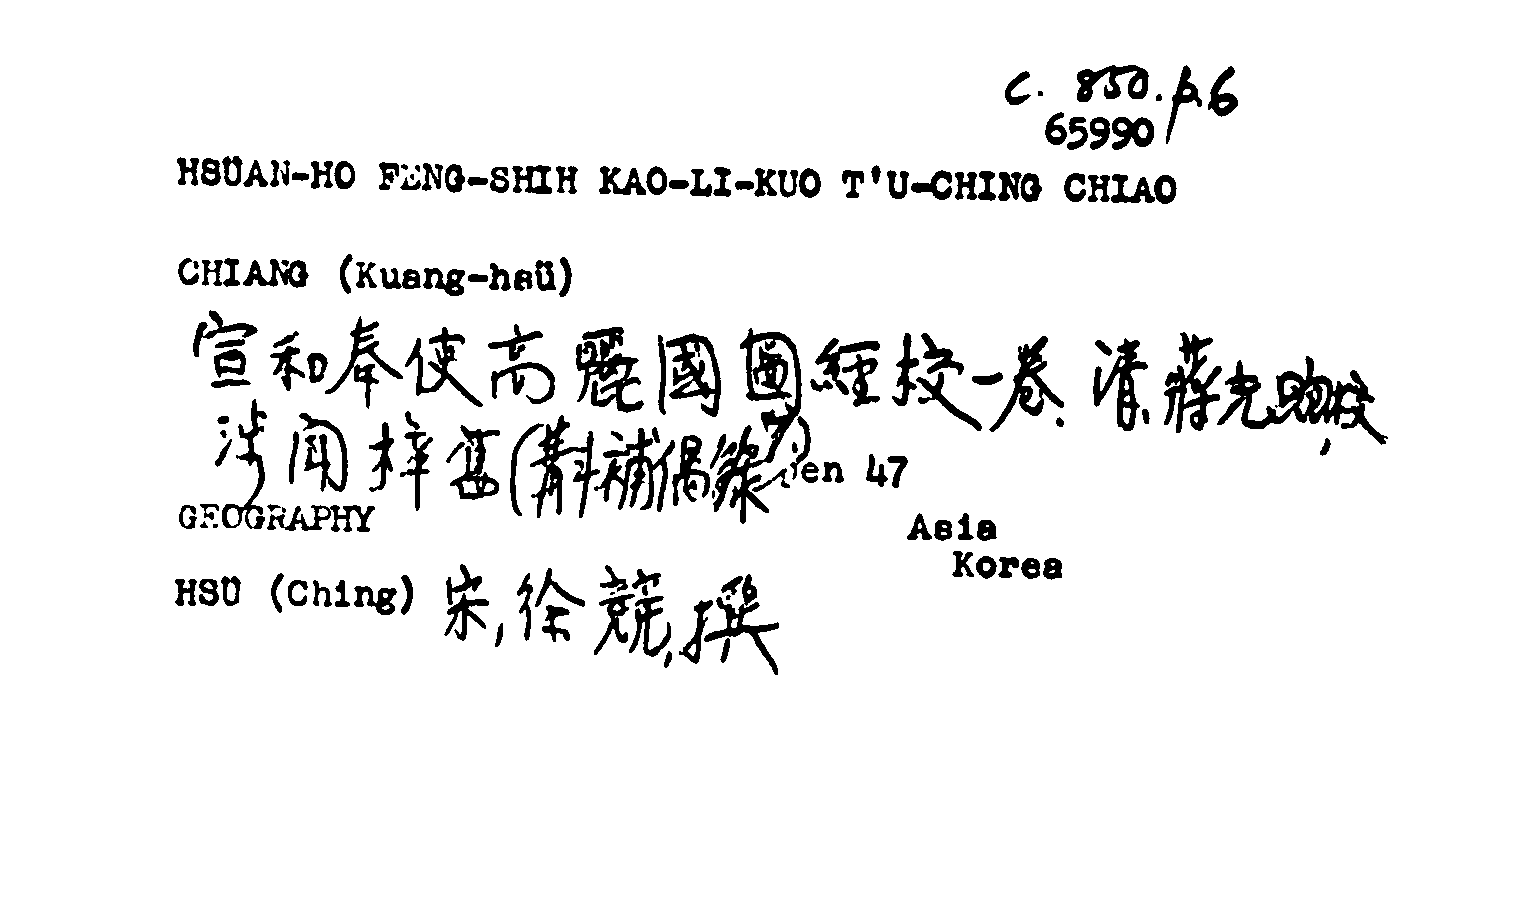 C. 850. p.6
65990
HSÜAN-HO FENG-SHIH KAO-LI-KUO T'U-CHING CHIAO
CHIANG (Kuang-hsü)
宣和奉使高麗國圖經校一卷. 清, 蔣光煦, 校
涉聞梓舊(斠補隅錄) pen 47
GEOGRAPHY
Asia
Korea
HSÜ (Ching) 宋, 徐兢, 撰